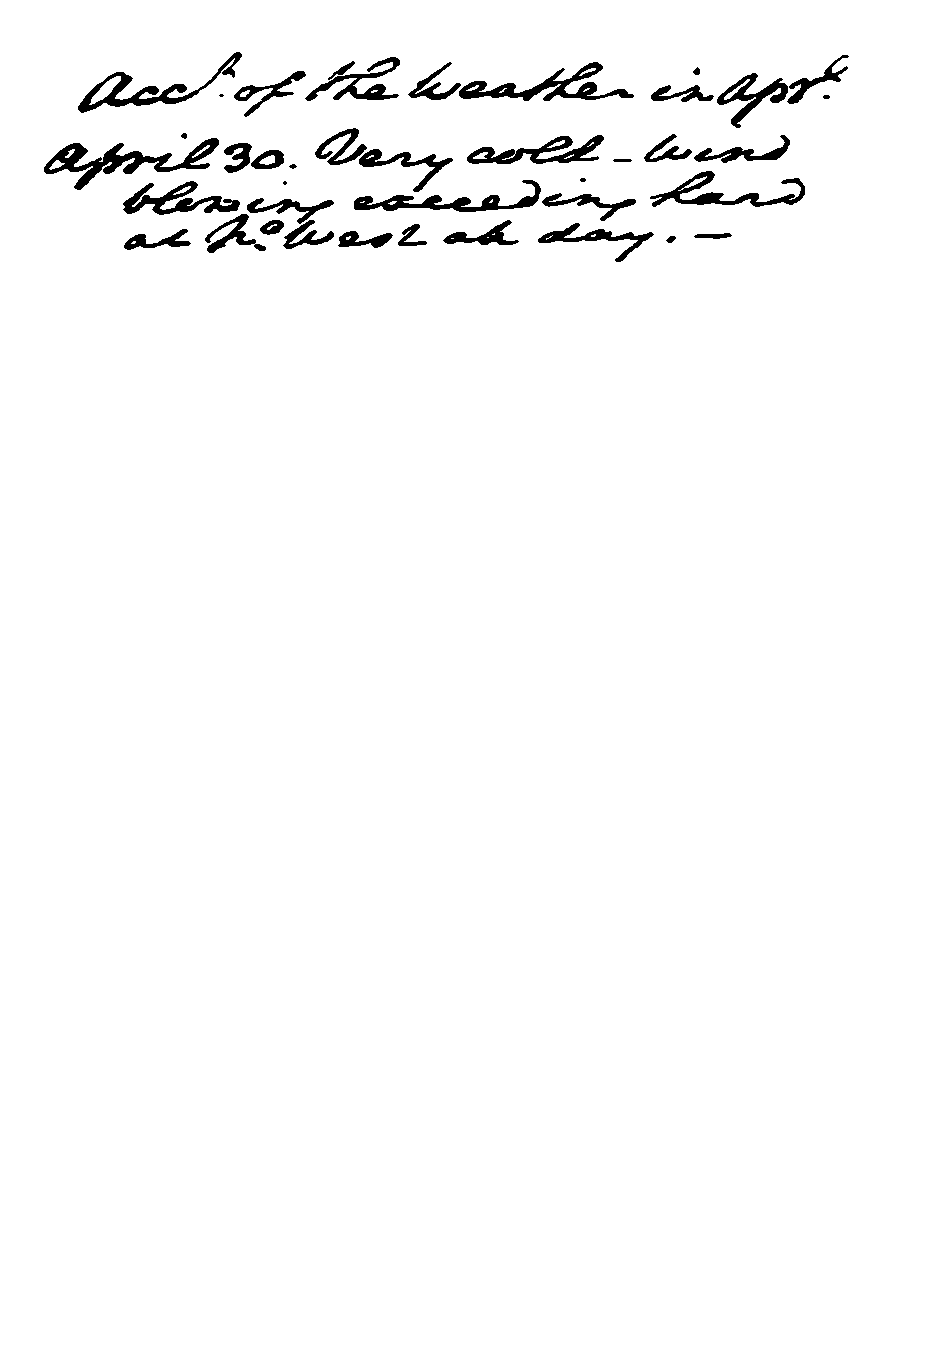 Acct. of the Weather in Aprl.
April 30. Very cold - wind
blowing exceeding hard
at No. West all day. -